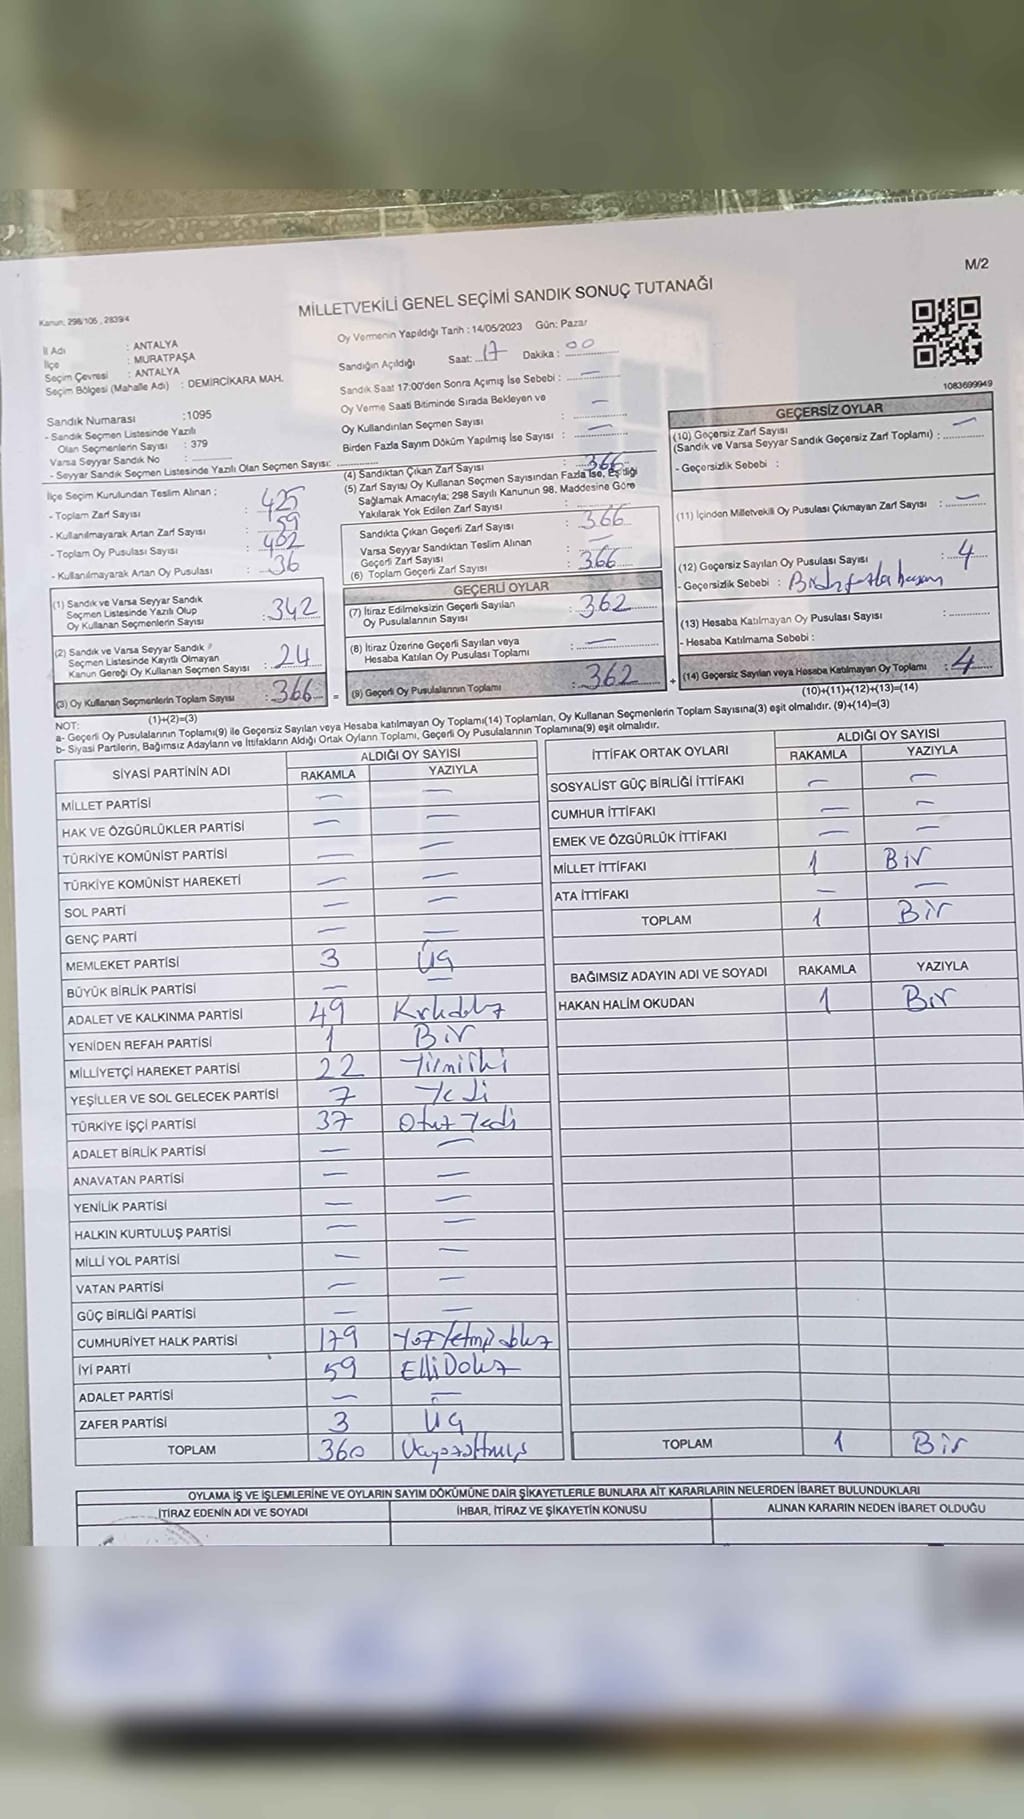 M/2
MİLLETVEKİLİ GENEL SEÇİMİ SANDIK SONUÇ TUTANAĞI
Kanun: 298/105 , 2839/4
1083699949
İl Adı : ANTALYA
İlçe : MURATPAŞA
Seçim Çevresi : ANTALYA
Seçim Bölgesi (Mahalle Adı) : DEMİRCİKARA MAH.
Sandık Numarası : 1095
- Sandık Seçmen Listesinde Yazılı
Olan Seçmenlerin Sayısı : 379
Varsa Seyyar Sandık No :
- Seyyar Sandık Seçmen Listesinde Yazılı Olan Seçmen Sayısı:
İlçe Seçim Kurulundan Teslim Alınan ;
- Toplam Zarf Sayısı : 425
- Kullanılmayarak Artan Zarf Sayısı : 59
- Toplam Oy Pusulası Sayısı : 402
- Kullanılmayarak Artan Oy Pusulası : 36
(1) Sandık ve Varsa Seyyar Sandık
Seçmen Listesinde Yazılı Olup
Oy Kullanan Seçmenlerin Sayısı : 342
(2) Sandık ve Varsa Seyyar Sandık
Seçmen Listesinde Kayıtlı Olmayan
Kanun Gereği Oy Kullanan Seçmen Sayısı : 24
(3) Oy Kullanan Seçmenlerin Toplam Sayısı : 366 =
(1)+(2)=(3)
Oy Vermenin Yapıldığı Tarih : 14/05/2023 Gün: Pazar
Sandığın Açıldığı Saat: 17 Dakika : 00
Sandık Saat 17:00'den Sonra Açımış İse Sebebi : —
Oy Verme Saati Bitiminde Sırada Bekleyen ve
Oy Kullandırılan Seçmen Sayısı : —
Birden Fazla Sayım Döküm Yapılmış İse Sayısı : —
(4) Sandıktan Çıkan Zarf Sayısı : 366
(5) Zarf Sayısı Oy Kullanan Seçmen Sayısından Fazla İse, Eşitliği
Sağlamak Amacıyla; 298 Sayılı Kanunun 98. Maddesine Göre
Yakılarak Yok Edilen Zarf Sayısı :
Sandıkta Çıkan Geçerli Zarf Sayısı : 366
Varsa Seyyar Sandıktan Teslim Alınan
Geçerli Zarf Sayısı : —
(6) Toplam Geçerli Zarf Sayısı : 366
GEÇERLİ OYLAR
(7) İtiraz Edilmeksizin Geçerli Sayılan
Oy Pusulalarının Sayısı : 362
(8) İtiraz Üzerine Geçerli Sayılan veya
Hesaba Katılan Oy Pusulası Toplamı : —
(9) Geçerli Oy Pusulalarının Toplamı : 362 +
GEÇERSİZ OYLAR
(10) Geçersiz Zarf Sayısı
(Sandık ve Varsa Seyyar Sandık Geçersiz Zarf Toplamı) : —
- Geçersizlik Sebebi :
(11) İçinden Milletvekili Oy Pusulası Çıkmayan Zarf Sayısı : —
(12) Geçersiz Sayılan Oy Pusulası Sayısı : 4
- Geçersizlik Sebebi :
(13) Hesaba Katılmayan Oy Pusulası Sayısı :
- Hesaba Katılmama Sebebi :
(14) Geçersiz Sayılan veya Hesaba Katılmayan Oy Toplamı : 4
(10)+(11)+(12)+(13)=(14)
NOT:
a- Geçerli Oy Pusulalarının Toplamı(9) ile Geçersiz Sayılan veya Hesaba katılmayan Oy Toplamı(14) Toplamları, Oy Kullanan Seçmenlerin Toplam Sayısına(3) eşit olmalıdır. (9)+(14)=(3)
b- Siyasi Partilerin, Bağımsız Adayların ve İttifakların Aldığı Ortak Oyların Toplamı, Geçerli Oy Pusulalarının Toplamına(9) eşit olmalıdır.
SİYASİ PARTİNİN ADI ALDIĞI OY SAYISI
RAKAMLA YAZIYLA
MİLLET PARTİSİ — —
HAK VE ÖZGÜRLÜKLER PARTİSİ — —
TÜRKİYE KOMÜNİST PARTİSİ — —
TÜRKİYE KOMÜNİST HAREKETİ — —
SOL PARTİ — —
GENÇ PARTİ — —
MEMLEKET PARTİSİ 3 Üç
BÜYÜK BİRLİK PARTİSİ — —
ADALET VE KALKINMA PARTİSİ 49
YENİDEN REFAH PARTİSİ 1 Bir
MİLLİYETÇİ HAREKET PARTİSİ 22 Yirmiiki
YEŞİLLER VE SOL GELECEK PARTİSİ 7 Yedi
TÜRKİYE İŞÇİ PARTİSİ 37 Otuz Yedi
ADALET BİRLİK PARTİSİ — —
ANAVATAN PARTİSİ — —
YENİLİK PARTİSİ — —
HALKIN KURTULUŞ PARTİSİ — —
MİLLİ YOL PARTİSİ — —
VATAN PARTİSİ — —
GÜÇ BİRLİĞİ PARTİSİ — —
CUMHURİYET HALK PARTİSİ 179 Yüz Yetmiş dokuz
İYİ PARTİ 59 Elli Dokuz
ADALET PARTİSİ — —
ZAFER PARTİSİ 3 Üç
TOPLAM 360 Üçyüzaltmış
İTTİFAK ORTAK OYLARI ALDIĞI OY SAYISI
RAKAMLA YAZIYLA
SOSYALİST GÜÇ BİRLİĞİ İTTİFAKI — —
CUMHUR İTTİFAKI — —
EMEK VE ÖZGÜRLÜK İTTİFAKI — —
MİLLET İTTİFAKI 1 Bir
ATA İTTİFAKI — —
TOPLAM 1 Bir
BAĞIMSIZ ADAYIN ADI VE SOYADI RAKAMLA YAZIYLA
HAKAN HALİM OKUDAN 1 Bir
TOPLAM 1 Bir
OYLAMA İŞ VE İŞLEMLERİNE VE OYLARIN SAYIM DÖKÜMÜNE DAİR ŞİKAYETLERLE BUNLARA AİT KARARLARIN NELERDEN İBARET BULUNDUKLARI
İTİRAZ EDENİN ADI VE SOYADI İHBAR, İTİRAZ VE ŞİKAYETİN KONUSU ALINAN KARARIN NEDEN İBARET OLDUĞU